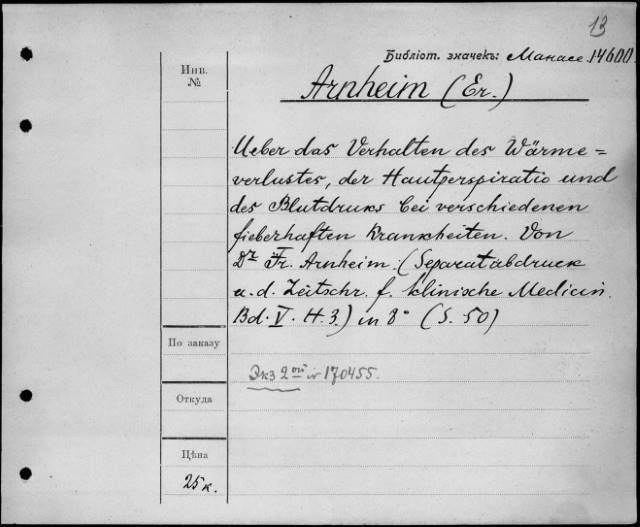 13
Библіот. значекъ: Манасе. 14600.
Инв.
№
Arnheim (Er.)
Ueber das Verhalten des Wärme=
verlustes, der Hautperspiratio und
des Blutdruks bei verschiedenen
fieberhaften Krankheiten. Von
Dr Fr. Arnheim. (Separatabdruck
a. d. Zeitschr. f. klinische Medicin.
Bd. V. H. 3.) in 8° (S. 50)
По заказу
Экз 2ой № 170455.
Откуда
Цѣна
25 к.